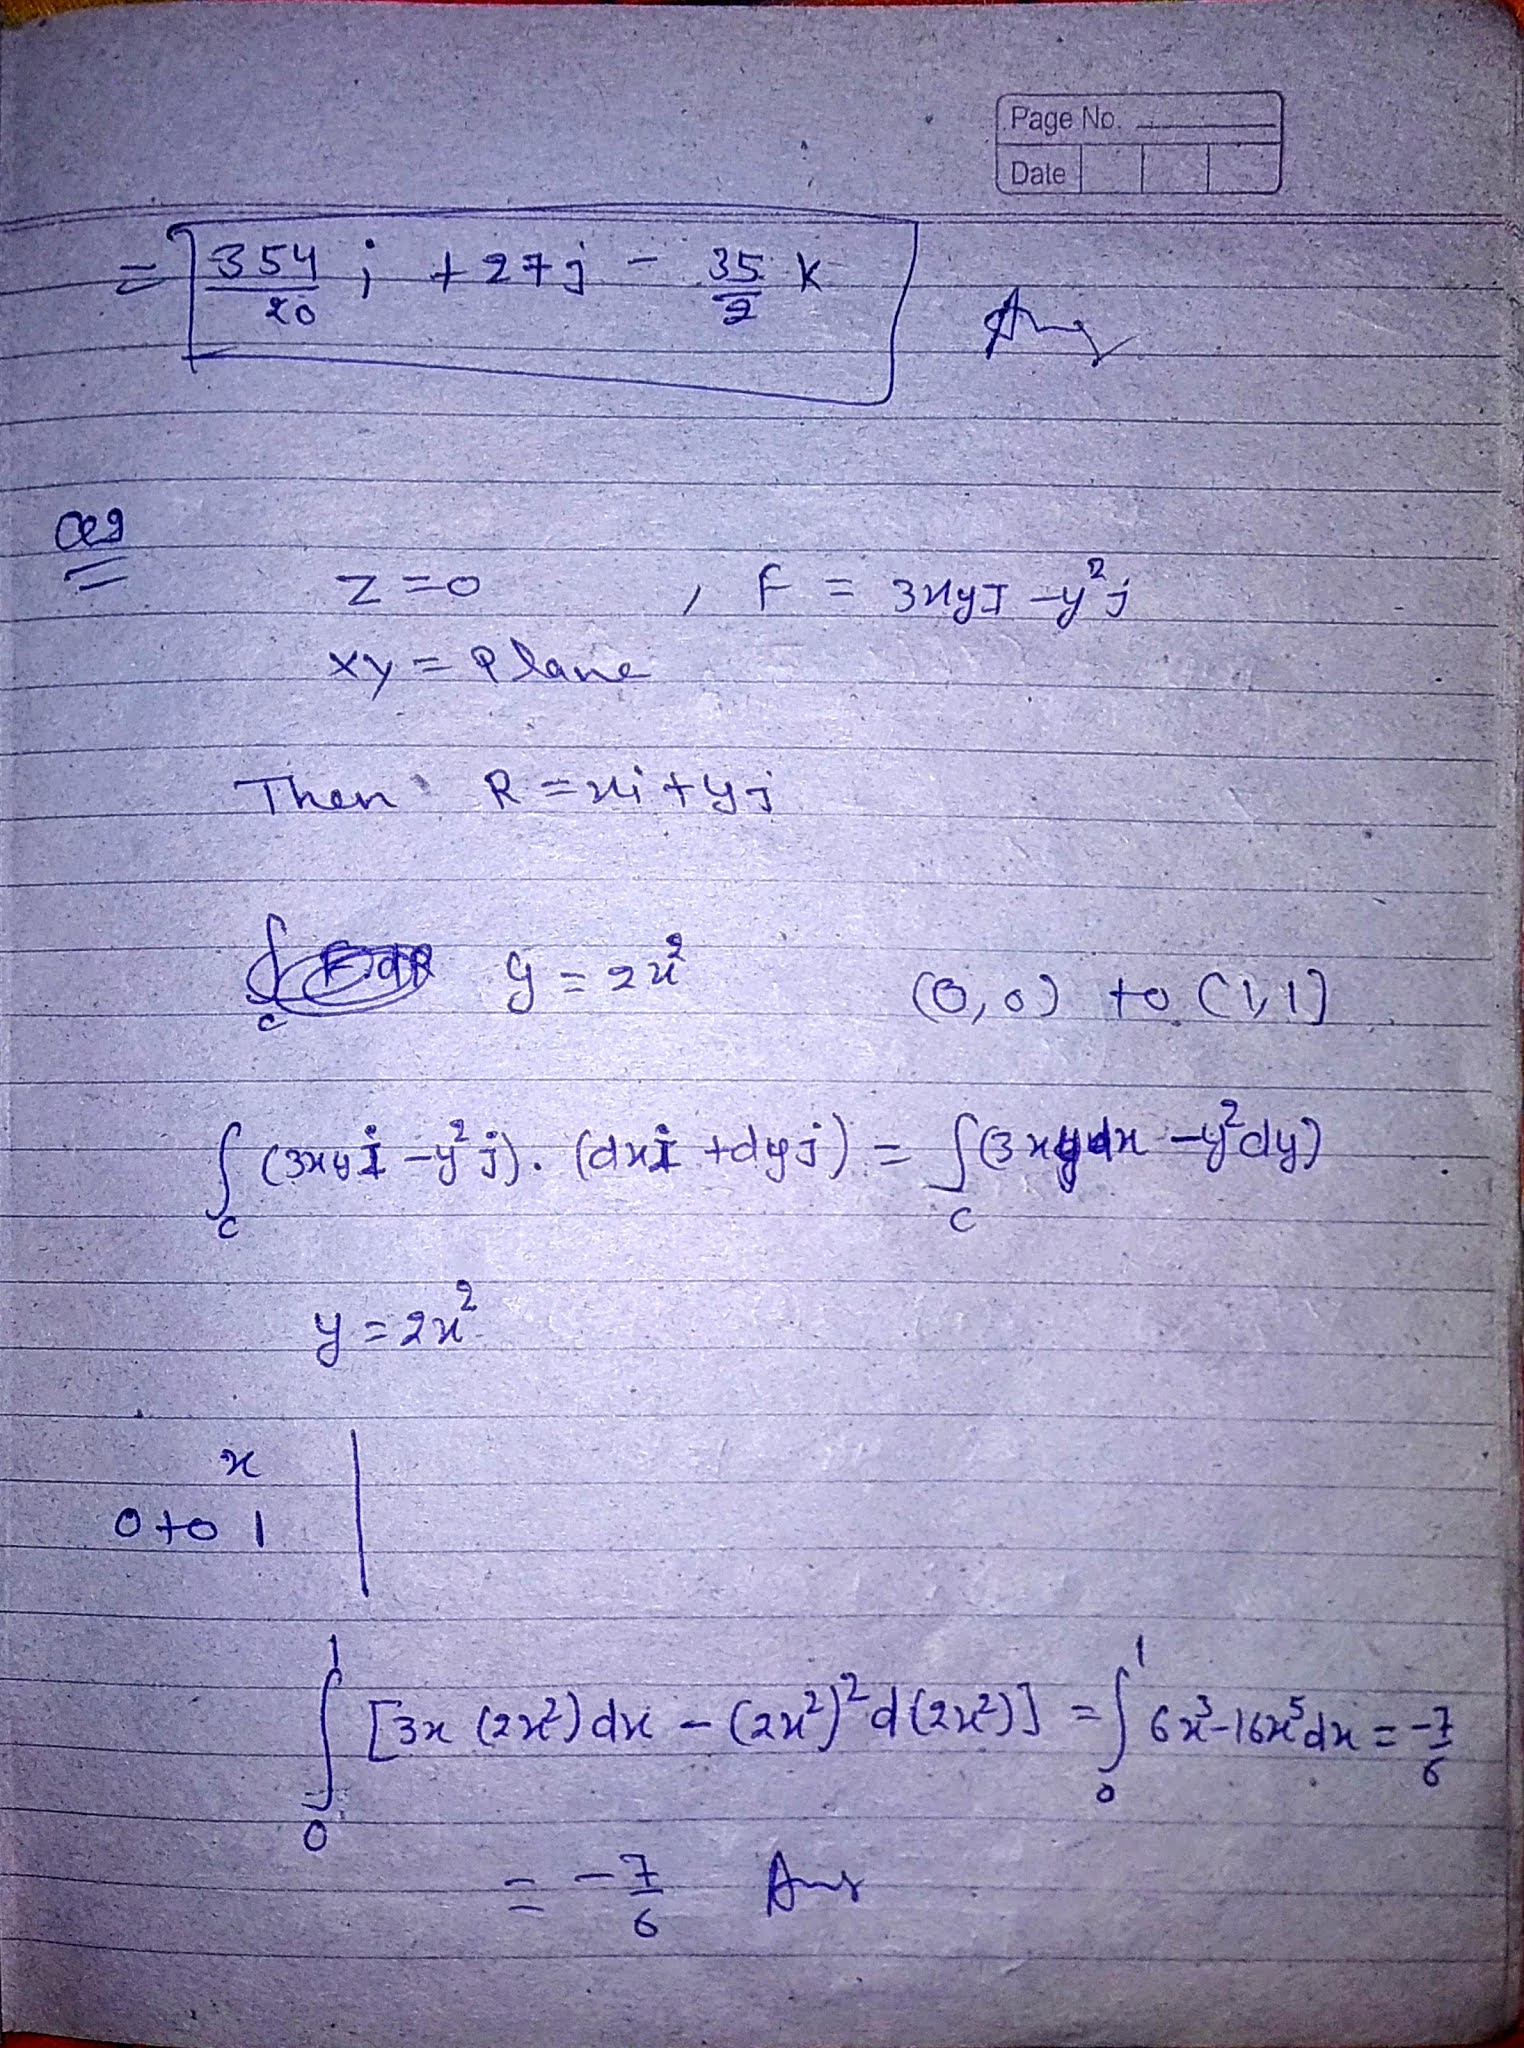 Page No.
Date
= 354/20 i + 27j - 35/2 k Ans
z=0 , F = 3xyI - y²j
xy = Plane
Then R = xi + yj
∫c y = 2x² (0,0) to (1,1)
∫c (3xyi - y²j). (dxi + dyj) = ∫c (3xydx - y²dy)
y = 2x²
x
0 to 1
∫₀¹ [3x (2x²) dx - (2x²)² d(2x²)] = ∫₀¹ 6x³-16x⁵dx = -7/6
= -7/6 Ans